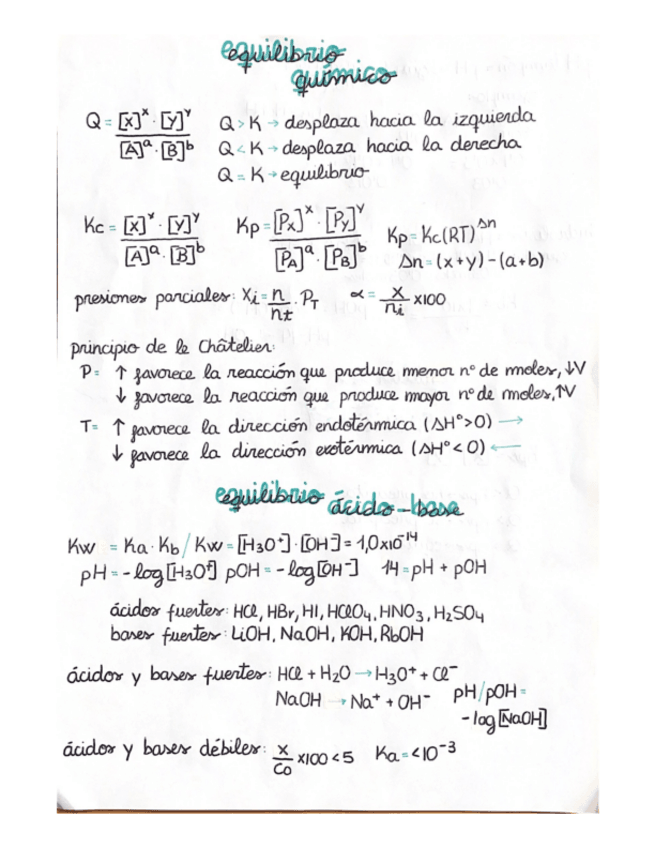 equilibrio
químico
Q = [X]ˣ · [Y]ʸ / [A]ᵃ · [B]ᵇ
Q > K → desplaza hacia la izquierda
Q < K → desplaza hacia la derecha
Q = K → equilibrio
Kc = [X]ˣ · [Y]ʸ / [A]ᵃ · [B]ᵇ Kp = [Px]ˣ · [Py]ʸ / [PA]ᵃ · [PB]ᵇ Kp = Kc(RT)^Δn
Δn = (x+y) - (a+b)
presiones parciales: Xi = n/nt · PT α = x/ni x100
principio de le Châtelier:
P = ↑ favorece la reacción que produce menor nº de moles, ↓V
↓ favorece la reacción que produce mayor nº de moles, ↑V
T = ↑ favorece la dirección endotérmica (ΔHº>0) →
↓ favorece la dirección exotérmica (ΔHº<0) ←
equilibrio ácido-base
Kw = Ka · Kb / Kw = [H₃O⁺] · [OH⁻] = 1,0x10⁻¹⁴
pH = -log[H₃O⁺] pOH = -log[OH⁻] 14 = pH + pOH
ácidos fuertes: HCl, HBr, HI, HClO₄, HNO₃, H₂SO₄
bases fuertes: LiOH, NaOH, KOH, RbOH
ácidos y bases fuertes: HCl + H₂O → H₃O⁺ + Cl⁻
NaOH → Na⁺ + OH⁻ pH/pOH =
-log[NaOH]
ácidos y bases débiles: x/Co x100 < 5 Ka = <10⁻³